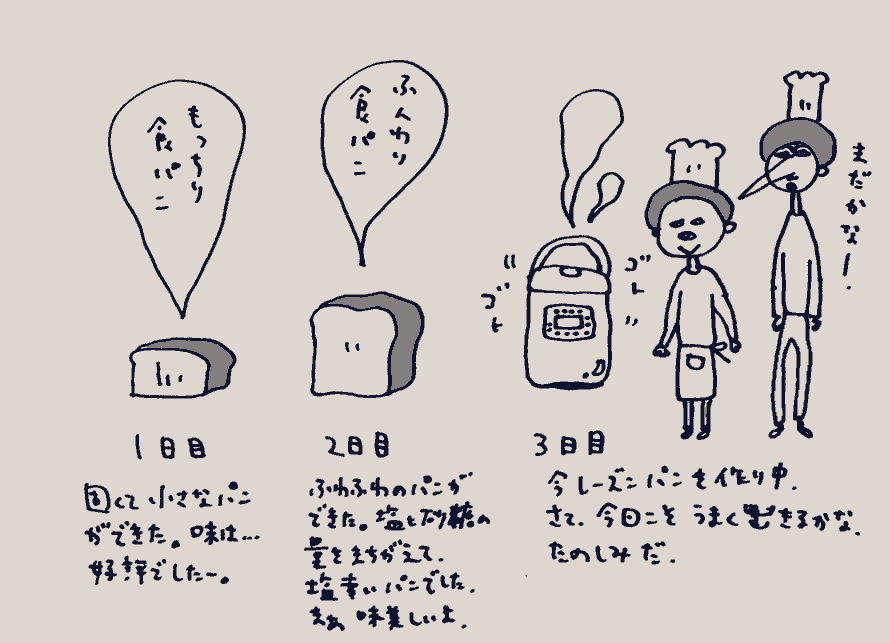 もっちり
食パン
ふんわり
食パン
まだかな!
ゴト
ゴト
1日目
2日目
3日目
固くて小さなパン
ができた。味は…
好評でしたー。
ふわふわのパンが
できた。塩と砂糖の
量をまちがえて、
塩辛いパンでした。
まぁ味美しいよ。
今レーズンパンを作り中。
さて、今日こそうまくできるかな。
たのしみだ。